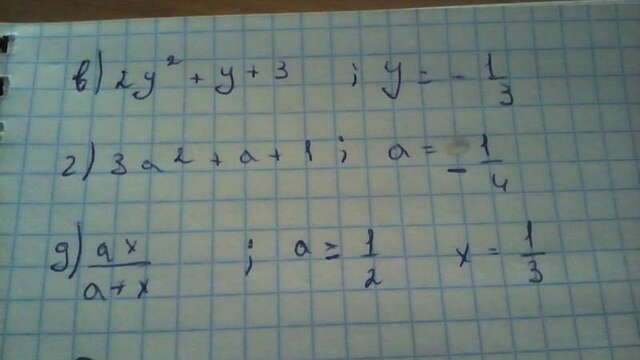 в) 2y² + y + 3 ; y = - 1/3
г) 3a² + a + 1 ; a = - 1/4
д) ax/a+x ; a = 1/2 x = 1/3